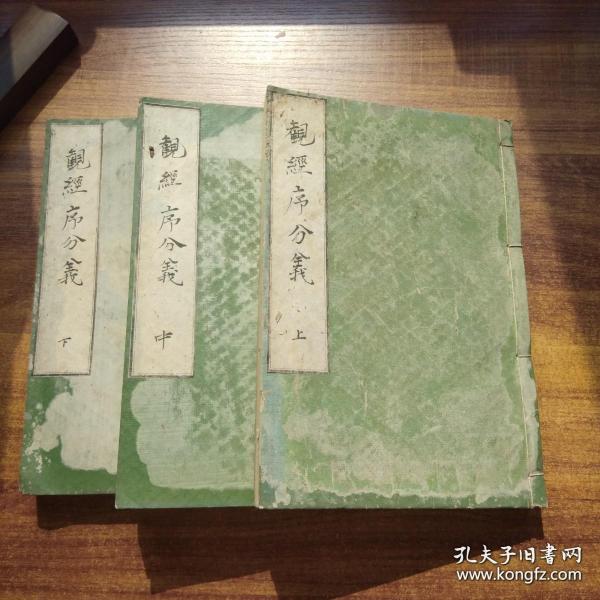 觀經序分義 上
觀經序分義 中
觀經序分義 下
孔夫子旧書网
www.kongfz.com